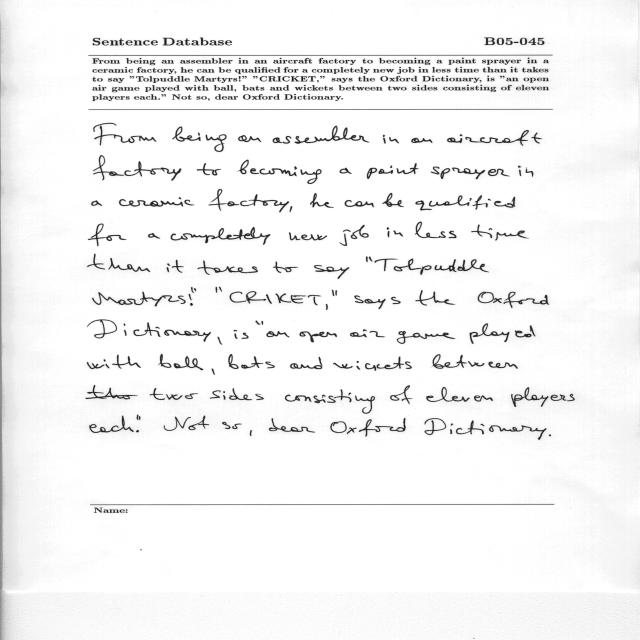 Sentence Database B05-045
From being an assembler in an aircraft factory to becoming a paint sprayer in a
ceramic factory, he can be qualified for a completely new job in less time than it takes
to say "Tolpuddle Martyrs!" "CRICKET," says the Oxford Dictionary, is "an open
air game played with ball, bats and wickets between two sides consisting of eleven
players each." Not so, dear Oxford Dictionary.
From being an assembler in an aircraft
factory to becoming a paint sprayer in
a ceramic factory, he can be qualified
for a completely new job in less time
than it takes to say "Tolpuddle
Martyrs!" "CRIKET," says the Oxford
Dictionary, is "an open air game played
with ball, bats and wickets between
the two sides consisting of eleven players
each." Not so, dear Oxford Dictionary.
Name: